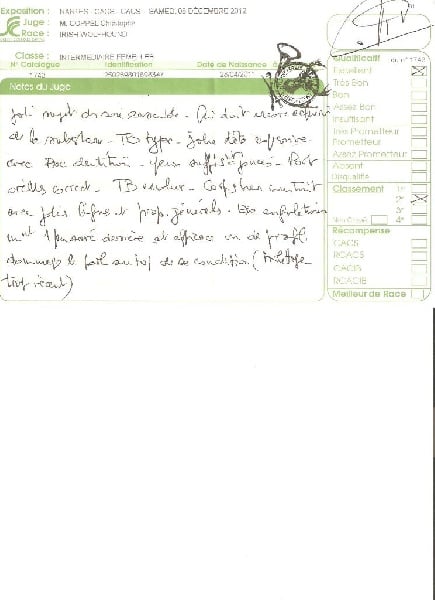 Exposition : NANTES - CACE - CACS - SAMEDI 08 DÉCEMBRE 2012
Juge : M. COPPEL Christophe
Race : IRISH WOLFHOUND
Classe : INTERMEDIAIRE FEMELLES
N° Catalogue Identification Date de Naissance
1743
Notes du Juge
Joli sujet dans son ensemble - Qui doit encore acquérir
de la substance - TB type - Jolie tête expressive
avec dentition - yeux suffist foncés - Port
oreilles correct - TB encolure - Corps bien construit
avec jolies lignes et prop. générales -
mvt 1 peu serré derrière et efficace vu de profil
dommage le poil au top de sa condition (
trop récent)
Qualificatif
Excellent
Très Bon
Bon
Assez Bon
Insuffisant
Très Prometteur
Prometteur
Assez Prometteur
Absent
Disqualifié
Classement 1e
2e
3e
Non Classé 4e
Récompense
CACS
RCACS
CACIB
RCACIB
Meilleur de Race